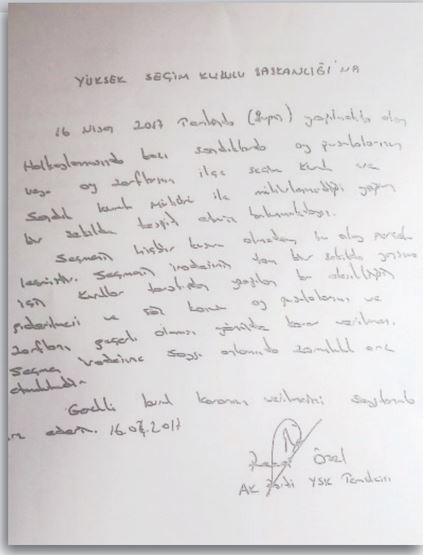 YÜKSEK SEÇİM KURULU BAŞKANLIĞI'NA
16 Nisan 2017 Tarihinde (Bugün) yapılmakta olan
Halkoylamasında bazı sandıklarda oy pusulalarının
veya oy zarflarının ilçe seçim kurulu ve
Sandık kurulu mühürü ile mühürlenmediği yaygın
bir şekilde tespit etmiş bulunmaktayız.
Seçmenin hiçbir kusuru olmadan bu olay gerçek
leşmiştir. Seçmen iradesinin tam bir şekilde yansıma
için kurullar tarafından yapılan bu eksikliğin
giderilmesi ve söz konusu oy pusulalarının ve
zarfların geçerli olması yönünde karar verilmesi,
Seçmen iradesine saygı anlamında zorunluluk arz
etmektedir.
Gerekli kurul kararının verilmesini saygılarımla
arz ederim. 16.04.2017
Recep Özel
AK Parti YSK Temsilcisi